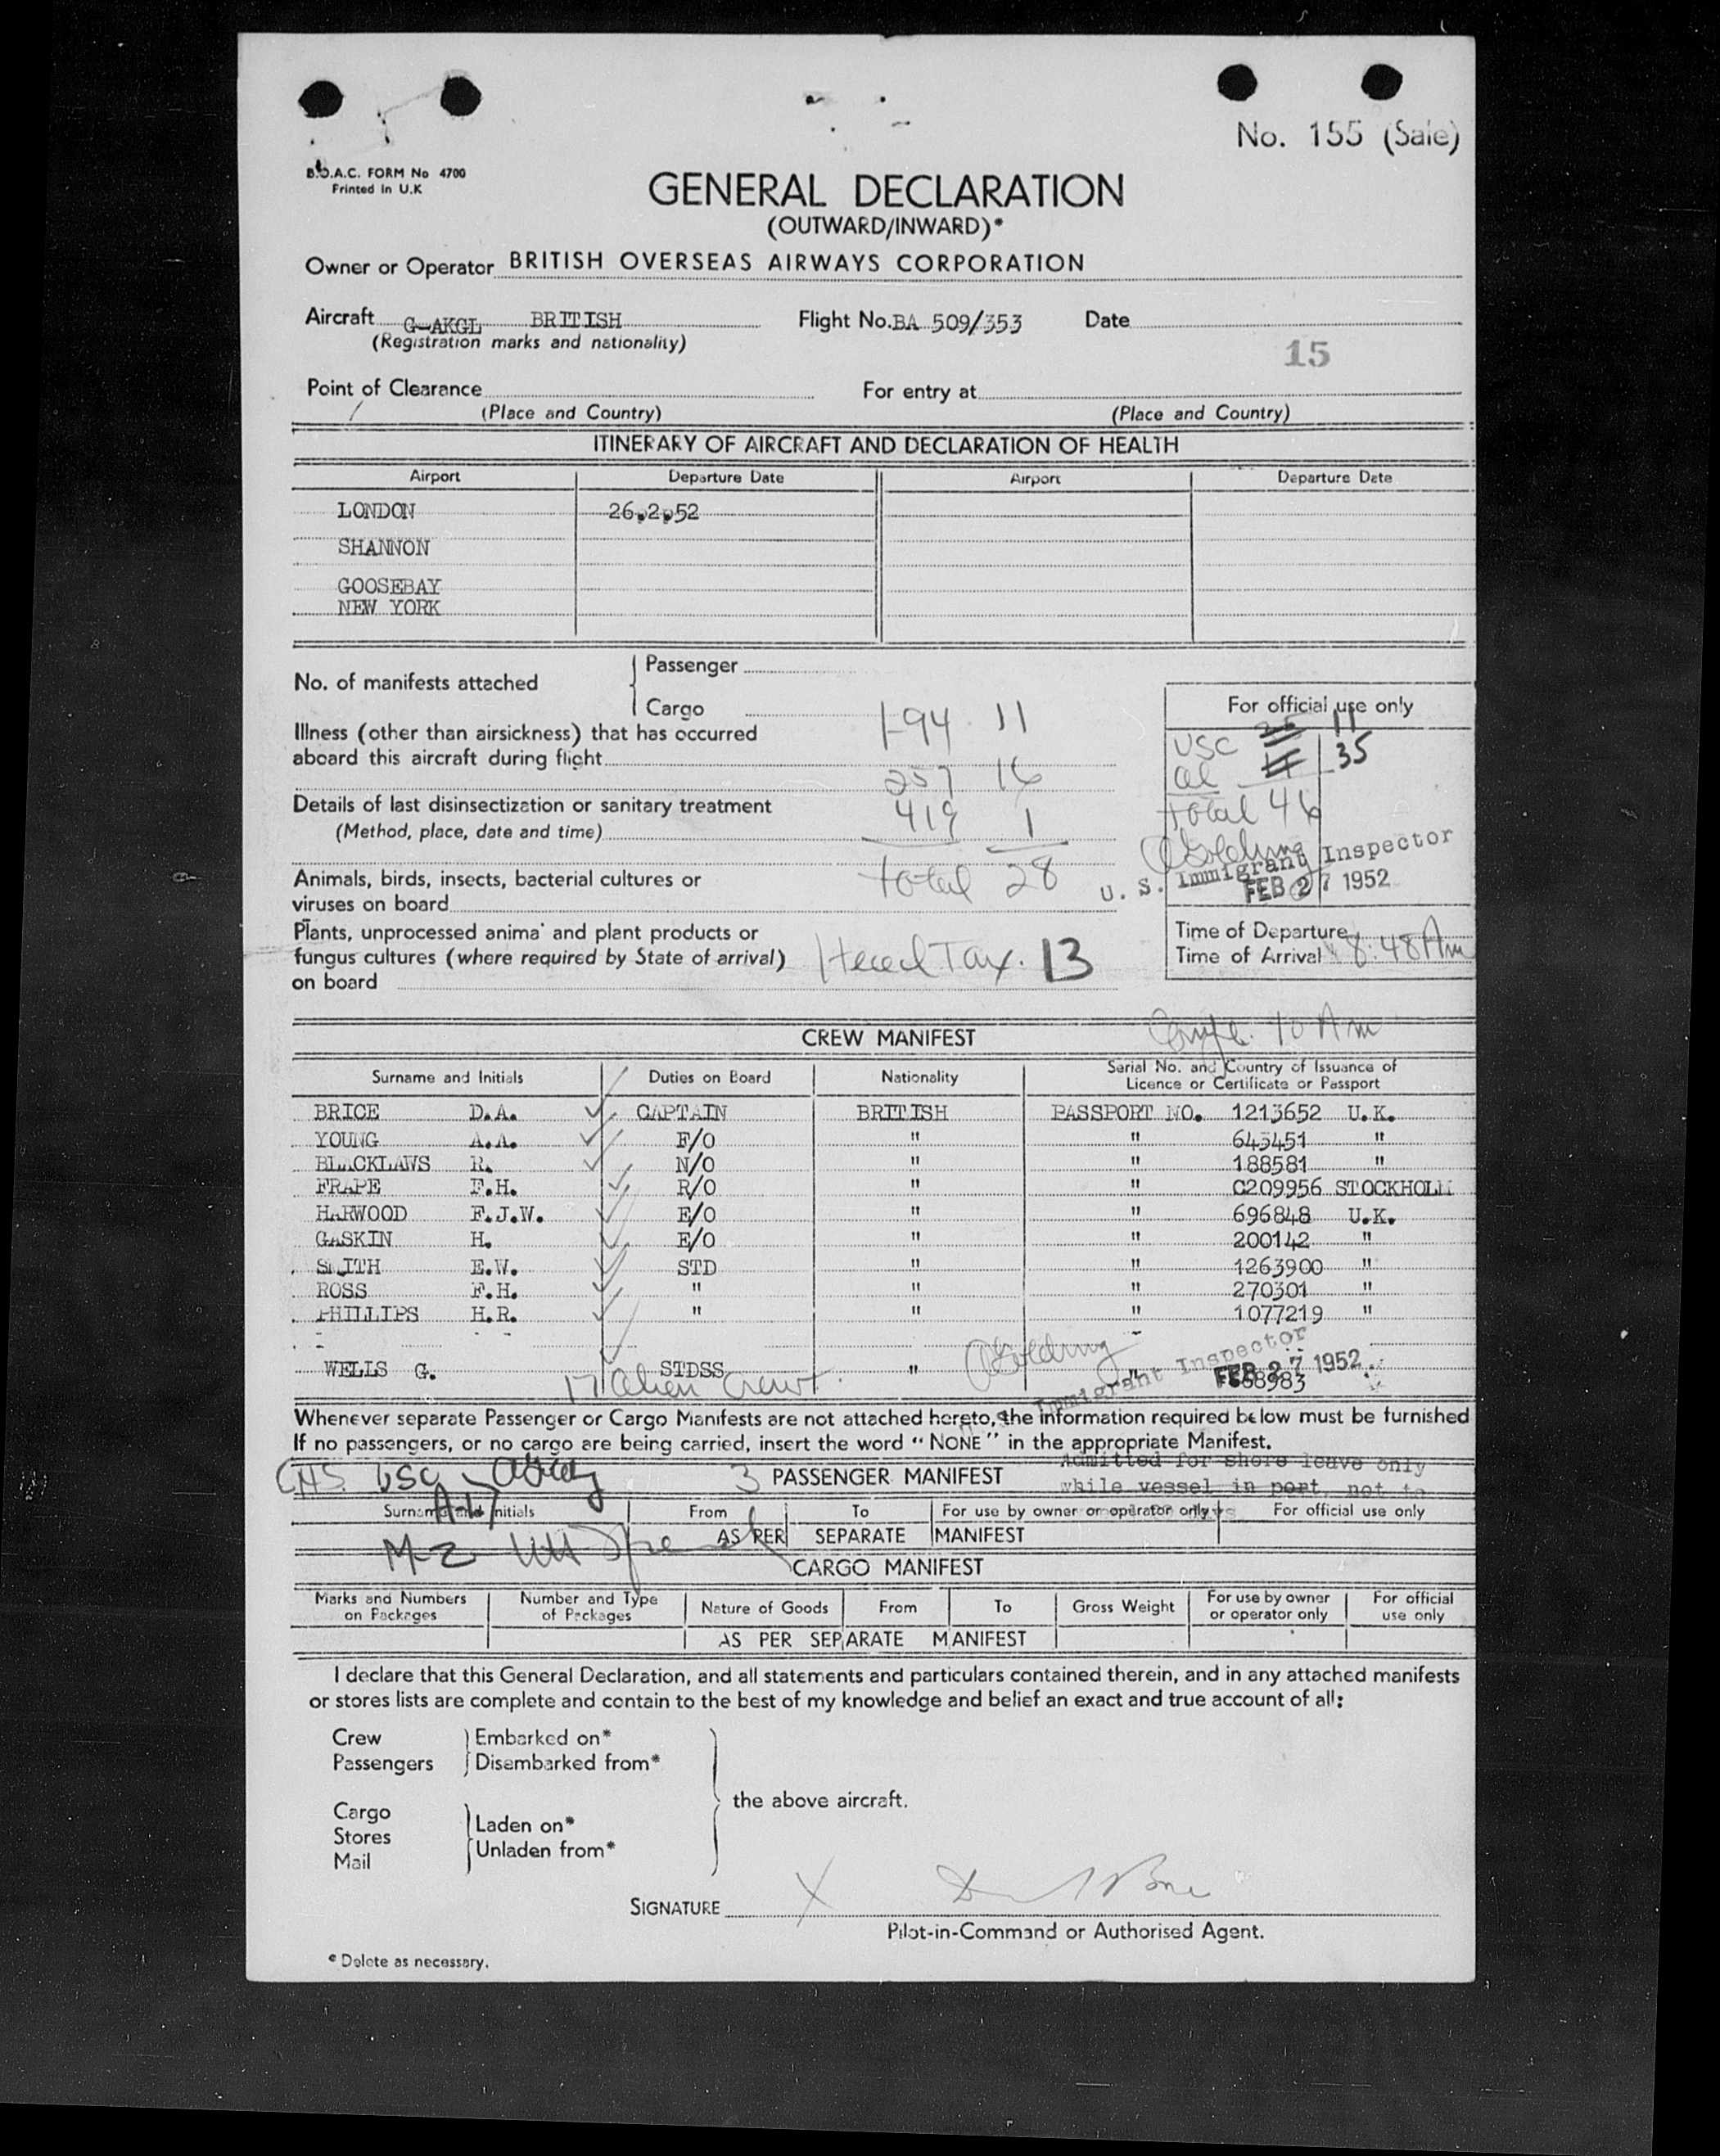 No. 155 (Sale)
B.O.A.C. FORM No 4700
Printed in U.K
GENERAL DECLARATION
(OUTWARD/INWARD)*
Owner or Operator BRITISH OVERSEAS AIRWAYS CORPORATION
Aircraft G-AKGL BRITISH Flight No. BA 509/353 Date
(Registration marks and nationality)
15
Point of Clearance For entry at
(Place and Country) (Place and Country)
ITINERARY OF AIRCRAFT AND DECLARATION OF HEALTH
Airport Departure Date Airport Departure Date
LONDON 26.2.52
SHANNON
GOOSEBAY
NEW YORK
No. of manifests attached
Passenger
Cargo
For official use only
Illness (other than airsickness) that has occurred
aboard this aircraft during flight
I-94 11
257 16
419 1
total 28
USC 11
al 35
total 46
Details of last disinsectization or sanitary treatment
(Method, place, date and time)
U. S. Immigrant Inspector
FEB 27 1952
Animals, birds, insects, bacterial cultures or
viruses on board
Plants, unprocessed anima' and plant products or
fungus cultures (where required by State of arrival)
on board
Head Tax. 13
Time of Departure
Time of Arrival 8:48 Am
10 Am
CREW MANIFEST
Surname and Initials Duties on Board Nationality Serial No. and Country of Issuance of
Licence or Certificate or Passport
BRICE D.A. CAPTAIN BRITISH PASSPORT NO. 1213652 U.K.
YOUNG A.A. F/O " " 643451 "
BLACKLAWS R. N/O " " 188581 "
FRAPE F.H. R/O " " C209956 STOCKHOLM
HARWOOD F.J.W. E/O " " 696848 U.K.
GASKIN H. E/O " " 200142 "
SMITH E.W. STD " " 1263900 "
ROSS F.H. " " " 270301 "
PHILLIPS H.R. " " " 1077219 "
WELLS G. STDSS " " 68983
Alien Crew
Immigrant Inspector
FEB 27 1952
Whenever separate Passenger or Cargo Manifests are not attached hereto, the information required below must be furnished
If no passengers, or no cargo are being carried, insert the word "NONE" in the appropriate Manifest.
Admitted for shore leave only
while vessel in port, not to
USC
3 PASSENGER MANIFEST
A-L
Surname and Initials From To For use by owner or operator only For official use only
AS PER SEPARATE MANIFEST
M-Z
CARGO MANIFEST
Marks and Numbers
on Packages
Number and Type
of Packages
Nature of Goods From To Gross Weight
For use by owner
or operator only
For official
use only
AS PER SEPARATE MANIFEST
I declare that this General Declaration, and all statements and particulars contained therein, and in any attached manifests
or stores lists are complete and contain to the best of my knowledge and belief an exact and true account of all:
Crew Embarked on*
Passengers Disembarked from*
the above aircraft.
Cargo
Stores
Mail
Laden on*
Unladen from*
SIGNATURE X
Pilot-in-Command or Authorised Agent.
* Delete as necessary.